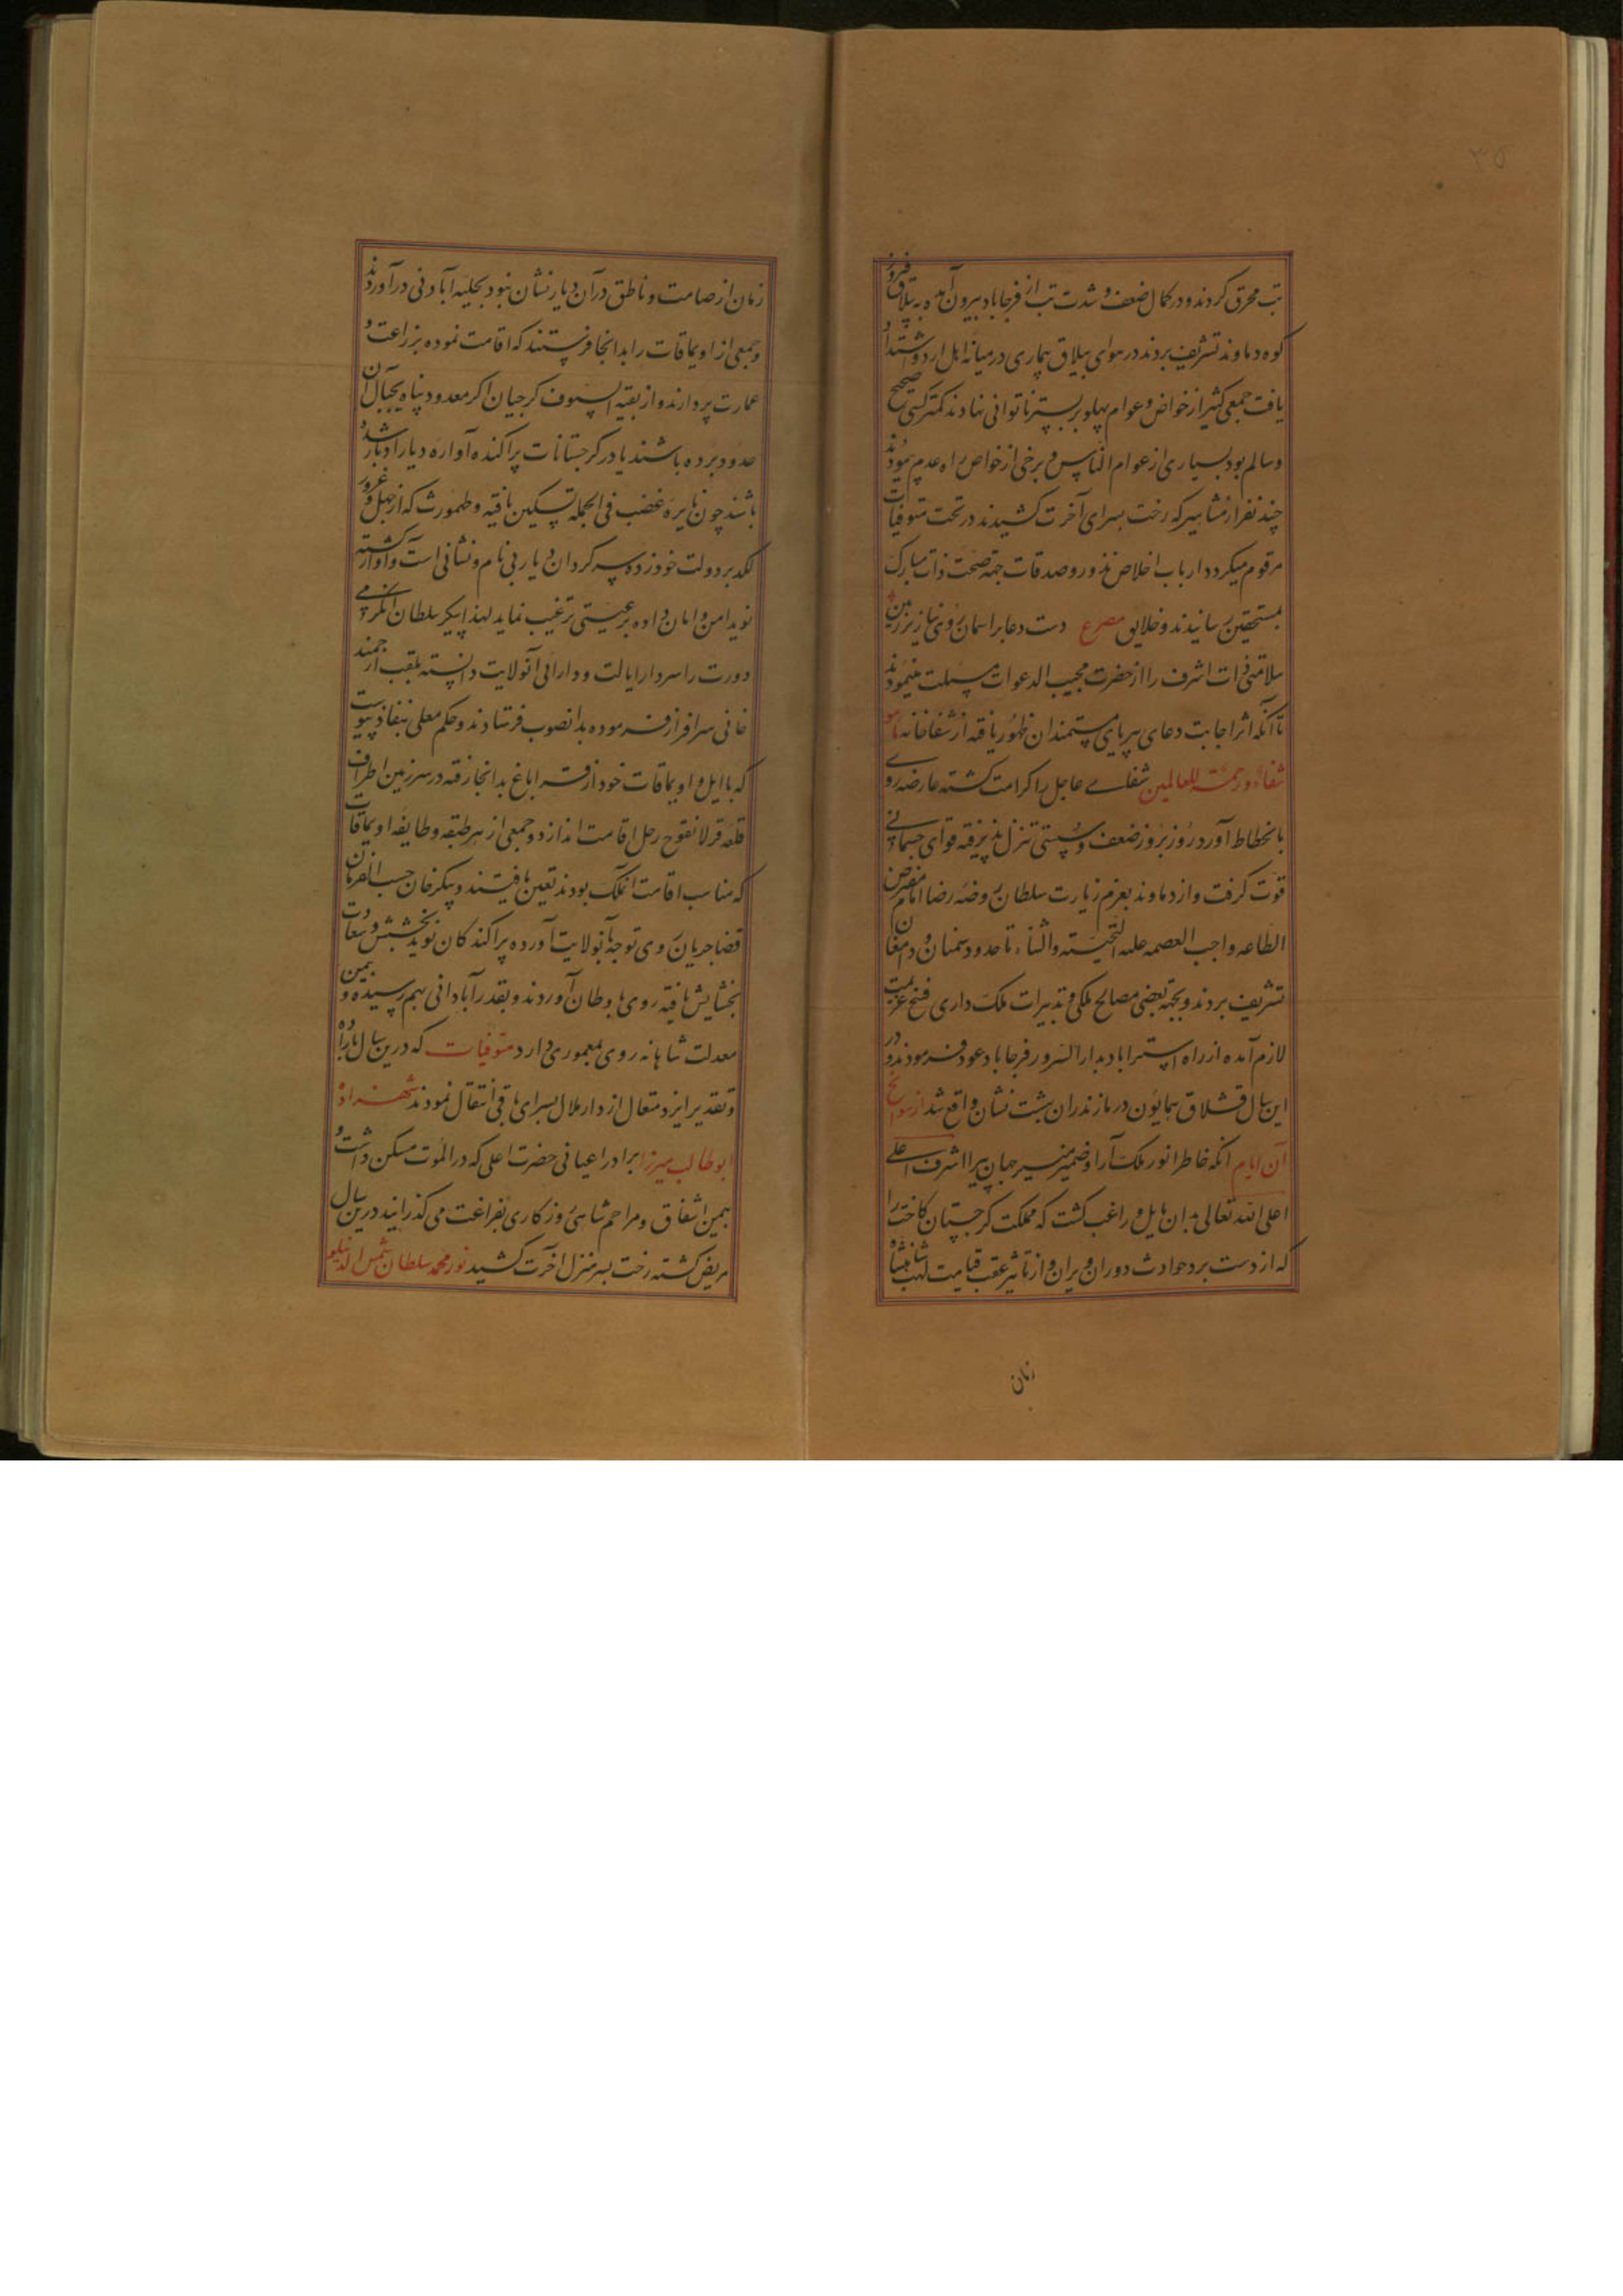 ۳۵
تب محرق کردند و در کمال ضعف و شدت تب از فرحاباد بیرون آمده به ییلاق فیروز
کوه دماوند تشریف بردند در هوای ییلاق بیماری در میانه اهل اردو اشتداد
یافت جمعی کثیر از خواص و عوام پهلو بر بستر ناتوانی نهادند کمتر کسی صحیح
و سالم بود بسیاری از عوام الناس و برخی از خواص راه عدم پیمودند
چند نفر از مشاهیر که رخت بسرای آخرت کشیدند در تحت متوفیات
مرقوم میکردد ارباب اخلاص نذور و صدقات جهة صحت ذات مبارک
بمستحقین رسانیدند و خلایق مصرع دست دعا بر اسمان روی نیاز بر زمین
سلامتی ذات اشرف را از حضرت مجیب الدعوات مسئلت مینمودند
تا آنکه اثر اجابت دعای بی ریای مستمندان ظهور یافته از شفاخانه ما هو
شفاء و رحمة للعالمین شفای عاجل را کرامت کشته عارضه روی
بانحطاط آورد روز بروز ضعف و سستی تنزل پذیرفته قوای جسمانی
قوت کرفت و از دماوند بعزم زیارت سلطان روضه رضا امام مفترض
الطاعه واجب العصمه علیه التحیته والثناء تا حدود سمنان و دامغان
تشریف بردند و بجهة بعضی مصالح ملکی و تدبیرات ملک داری فسخ عزیمت
لازم آمده از راه استراباد بدار السرور فرحاباد عود فرمودند و در
این سال قشلاق همایون در مازندران بهشت نشان واقع شد از سوانح
آن ایام آنکه خاطر انور ملک آرا و ضمیر منیر جهان پیرا اشرف اعلی
اعلی الله تعالی بدان مایل و راغب کشت که مملکت کرجستان کاخت را
که از دست برد حوادث دوران ویران و از تاثیر غضب قیامت لهب شاهنشاه
زمان
زمان از صامت و ناطق در آن دیار نشان نبود بحلیه آبادنی درآورند
و جمعی از اویماقات را بدانجا فرستند که اقامت نموده بزراعت و
عمارت پردازند و از بقیه السیوف کرجیان اکر معدود پناه بجبال آن
حدود برده باشند یا در کرجستانات پراکنده آواره دیار ادبار شده
باشند چون نایره غضب فی الجمله تسکین یافته و طهمورث که از جهل و غرور
لکد بر دولت خود زده سرکردان دیار بی نام و نشانی است و آواره کشته
نوید امن و امان داده برعیتی ترغیب نماید لهذا پیکر سلطان ایکرمی
دورت را سردار ایالت و دارائی آنولایت دانسته بلقب ارجمند
خانی سرافراز فرموده بدانصوب فرستادند و حکم معلی بنفاذ پیوست
که با ایل و اویماقات خود از قراباغ بدانجا رفته در سرزمین اطراف
قلعه قرلانقوح رحل اقامت اندازد و جمعی از هر طبقه و طایفه اویماقات
که مناسب اقامت آنملک بودند تعین یافتند و پیکر خان حسب الفرمان
قضا جریان روی توجه بآنولایت آورده پراکندکان نوید بخشش و سعادت
بخشایش یافته روی باوطان آوردند و بقدر آبادانی بهم رسیده و بیمن
معدلت شاهانه روی بمعموری دارد متوفیات که درین سال باراده
و تقدیر ایزد متعال از دار ملال بسرای باقی انتقال نمودند شهزاده
ابوطالب میرزا برادر اعیانی حضرت اعلی که در الموت مسکن داشت و
بیمن اشفاق و مراحم شاهی روزکاری بفراغت می کذرانید درین سال
مریض کشته رخت بسر منزل آخرت کشید نور محمد سلطان شمس الدینلو